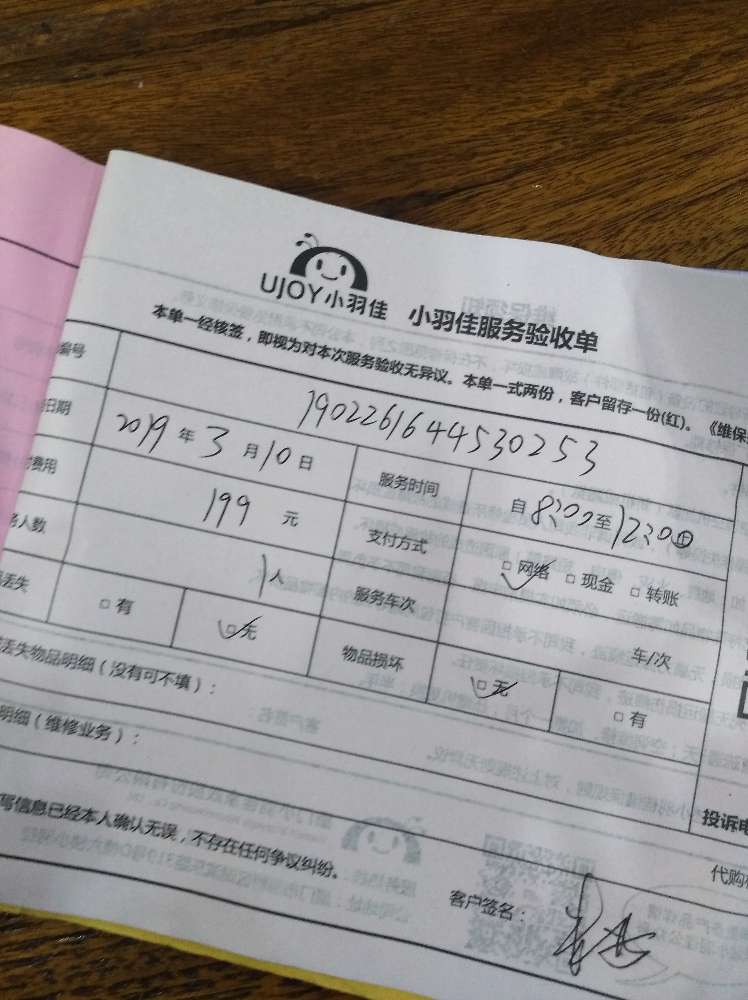 UJOY小羽佳 小羽佳服务验收单
本单一经核签，即视为对本次服务验收无异议。本单一式两份，客户留存一份(红)。《维保
编号 1902261644530253
日期 2019年3月10日 服务时间 自8:00至12:00止
费用 199元 支付方式 □网络 □现金 □转账
人数 1人 服务车次 车/次
丢失 □有 □无 物品损坏 □无 □有
丢失物品明细（没有可不填）：
明细（维修业务）：
投诉电
写信息已经本人确认无误，不存在任何争议纠纷。
代购
客户签名：